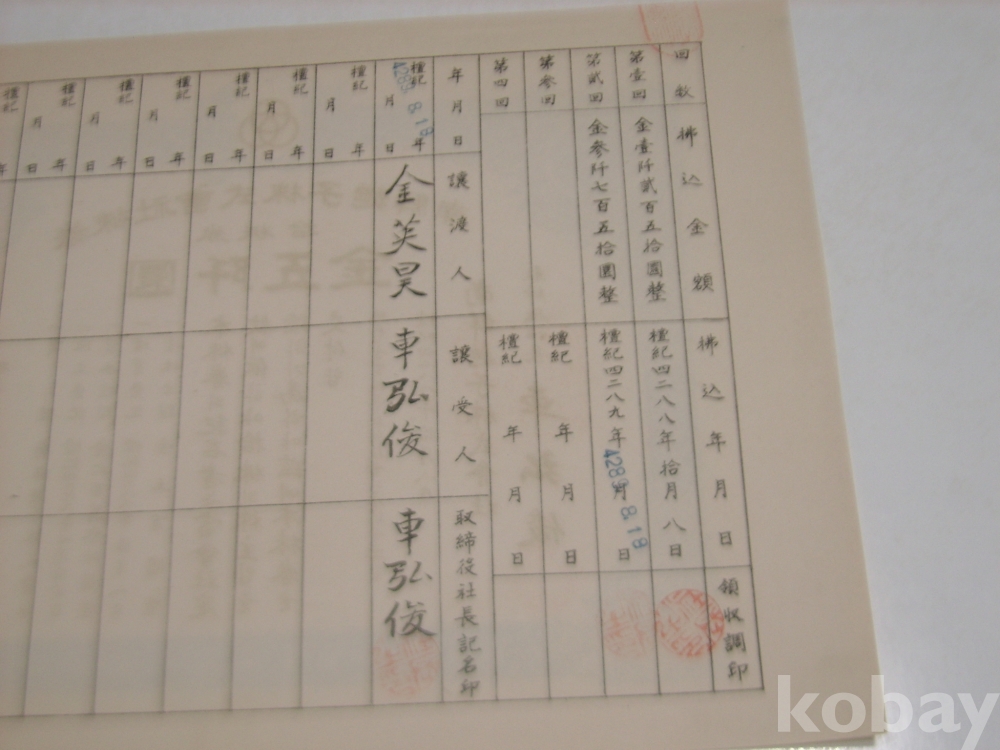 回數 拂込金額 拂込年月日 領收調印
第壹回 金壹阡貳百五拾圓整 檀紀四二八八年拾月八日
第貳回 金參阡七百五拾圓整 檀紀四二八九年 月 日 4289. 8. 18
第參回 檀紀 年 月 日
第四回 檀紀 年 月 日
年月日 讓渡人 讓受人 取締役社長記名印
檀紀 年 月 日 4289 8. 18 金英昊 車弘俊 車弘俊
檀紀 年 月 日
檀紀 年 月 日
檀紀 年 月 日
檀紀 年 月 日
檀紀 年 月 日
檀紀 年 月 日
檀紀 年 月 日
kobay